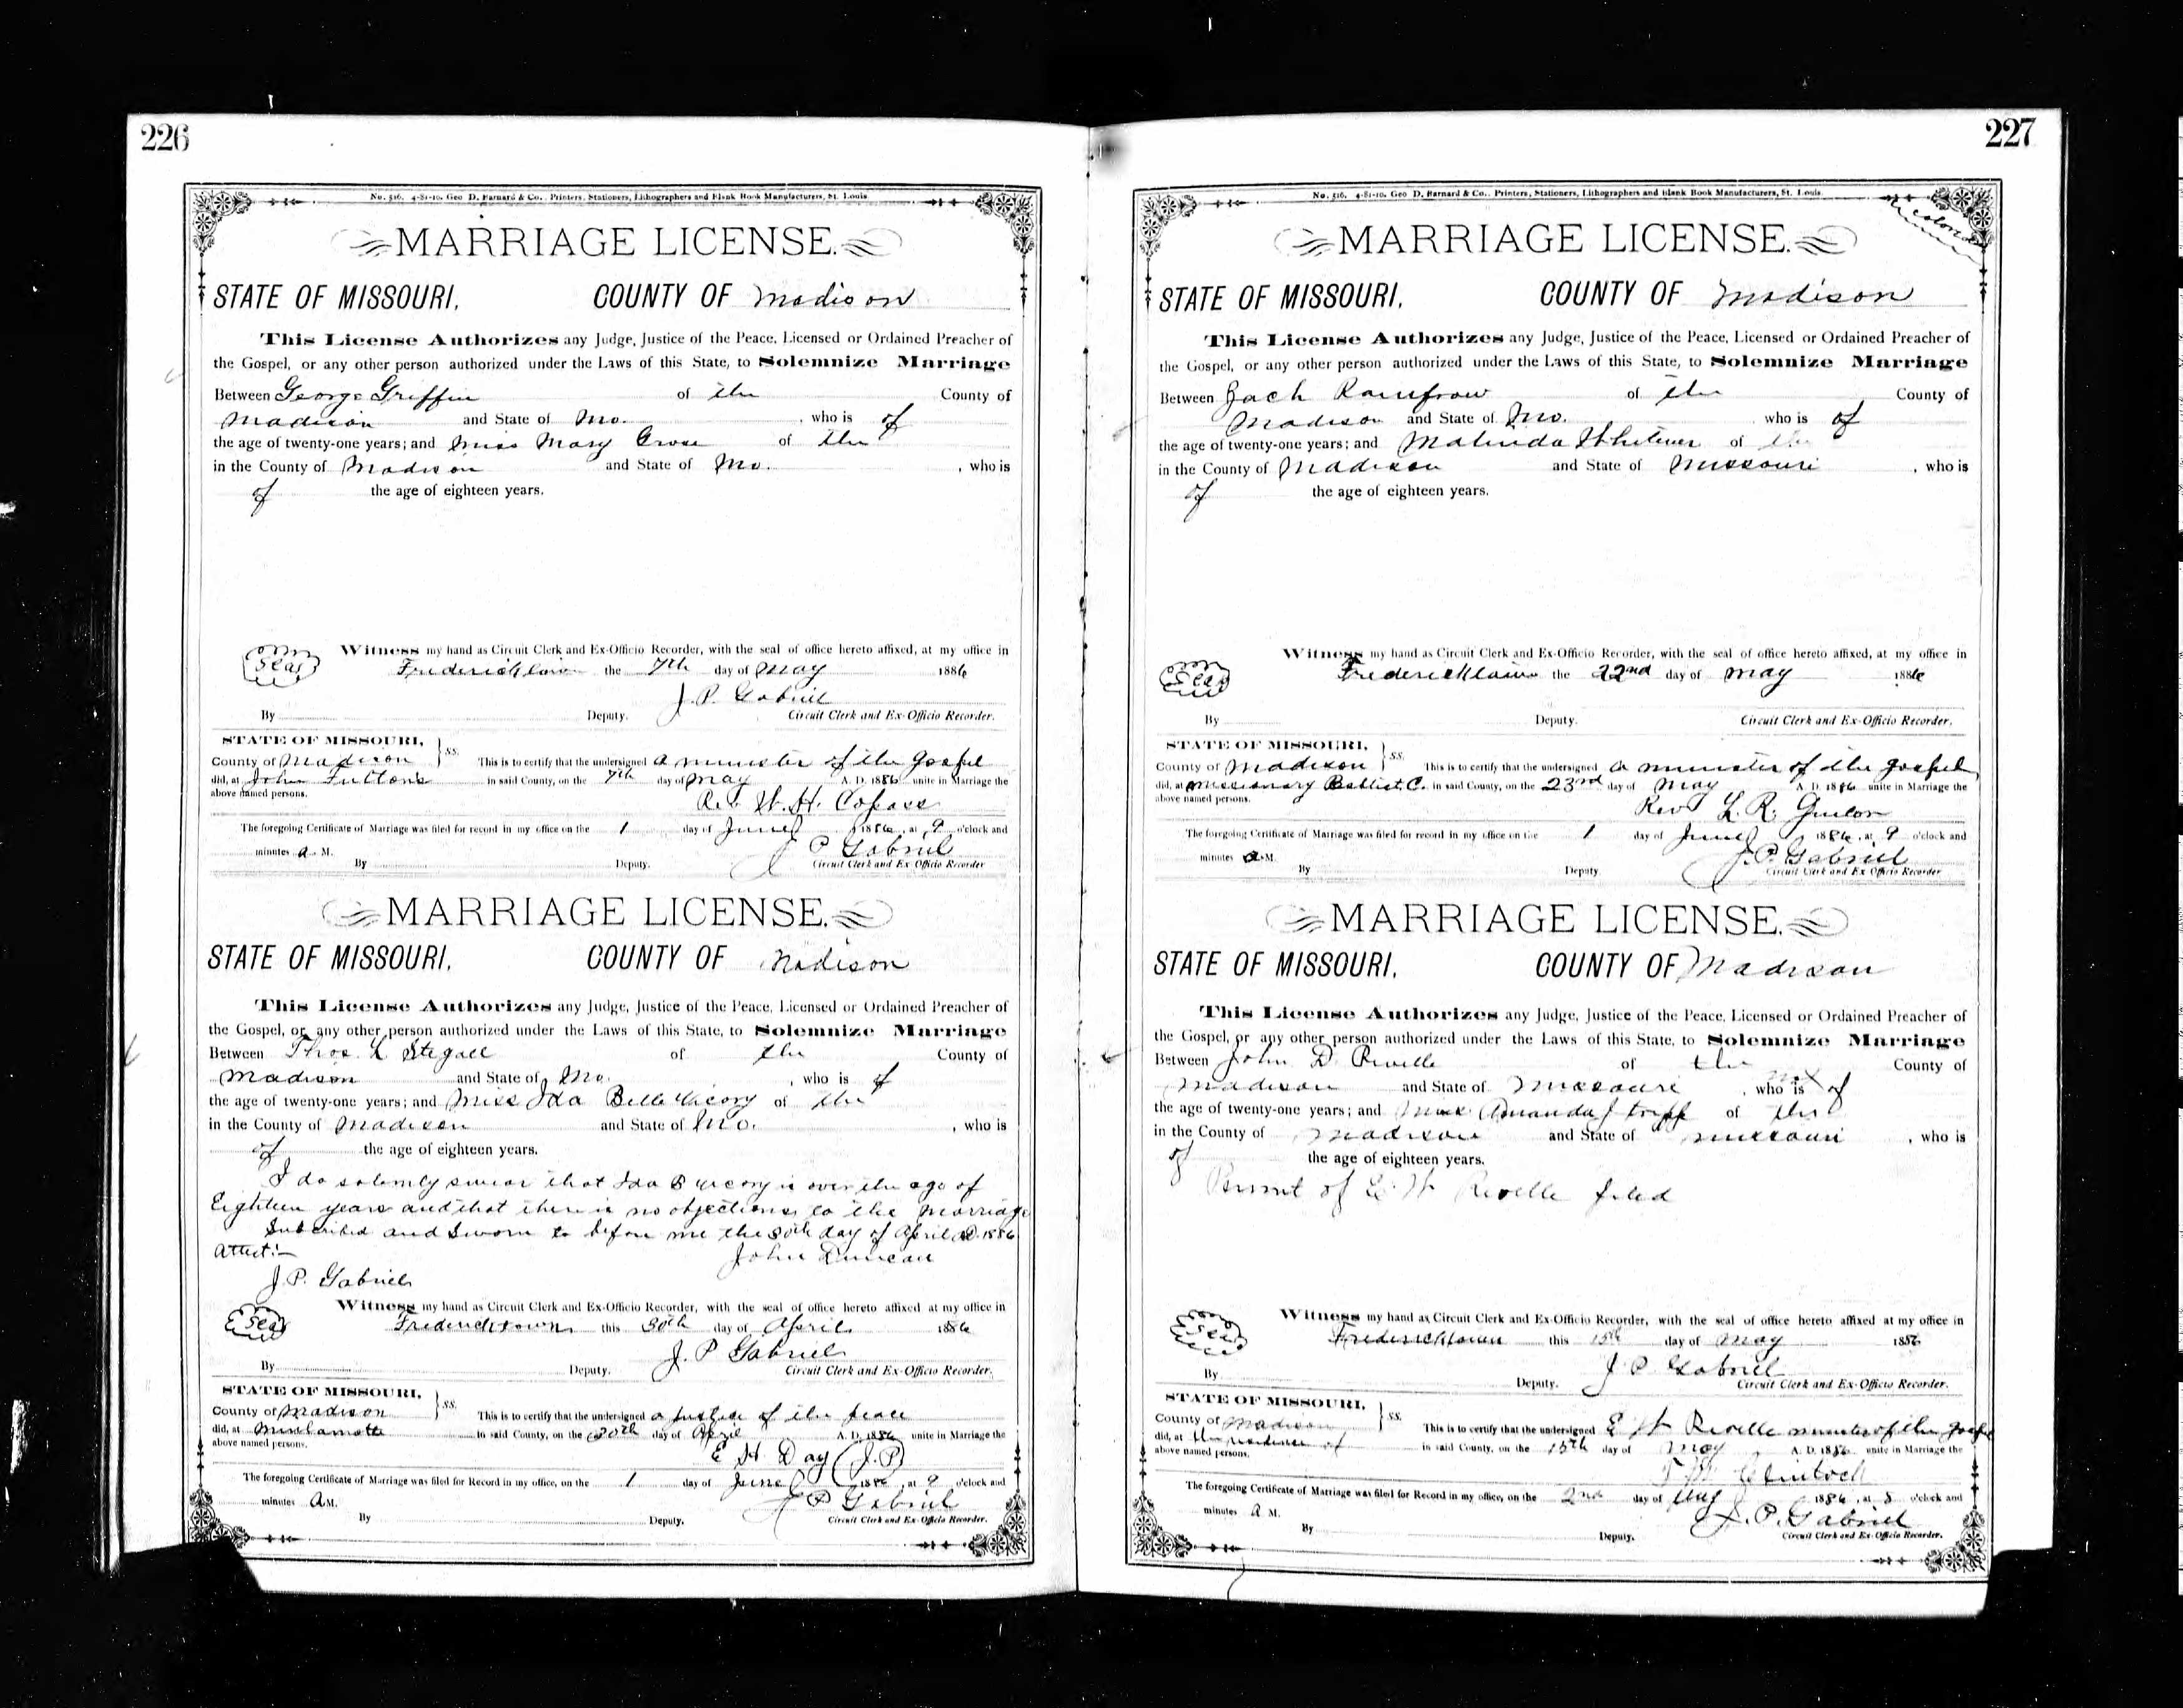 226
No. 516. 4-81-10. Geo D. Barnard & Co., Printers, Stationers, Lithographers and Blank Book Manufacturers, St. Louis
MARRIAGE LICENSE.
STATE OF MISSOURI, COUNTY OF Madison
This License Authorizes any Judge, Justice of the Peace, Licensed or Ordained Preacher of
the Gospel, or any other person authorized under the Laws of this State, to Solemnize Marriage
Between George Griffin of the County of
Madison and State of Mo. , who is of
the age of twenty-one years; and Miss Mary of the
in the County of Madison and State of Mo. , who is
of the age of eighteen years.
Seal
Witness my hand as Circuit Clerk and Ex-Officio Recorder, with the seal of office hereto affixed, at my office in
Fredericktown the 7th day of May 1886
J. P. Gabriel
By Deputy. Circuit Clerk and Ex-Officio Recorder.
STATE OF MISSOURI,
County of Madison ss. This is to certify that the undersigned a minister of the gospel
did, at John Fulton's in said County, on the 7th day of May A. D. 1886 unite in Marriage the
above named persons.
Rev W. H. Copass
The foregoing Certificate of Marriage was filed for record in my office on the 1 day of June 1886, at 9 o'clock and
minutes A. M. J P Gabriel
By Deputy. Circuit Clerk and Ex Officio Recorder
MARRIAGE LICENSE.
STATE OF MISSOURI, COUNTY OF Madison
This License Authorizes any Judge, Justice of the Peace, Licensed or Ordained Preacher of
the Gospel, or any other person authorized under the Laws of this State, to Solemnize Marriage
Between Thos. L Stegall of the County of
Madison and State of Mo. , who is of
the age of twenty-one years; and Miss Ida Belle Vicory of the
in the County of Madison and State of Mo. , who is
of the age of eighteen years.
I do solemly swear that Ida B Vicory is over the age of
Eighteen years and that there is no objections to the marriage
Subscribed and sworn to before me the 30th day of April AD. 1886
Attest:- John Duncan
J. P. Gabriel
Seal
Witness my hand as Circuit Clerk and Ex-Officio Recorder, with the seal of office hereto affixed at my office in
Fredericktown this 30th day of April 1886
J. P Gabriel
By Deputy. Circuit Clerk and Ex-Officio Recorder.
STATE OF MISSOURI,
County of Madison ss. This is to certify that the undersigned a justice of the peace
did, at Minlamotte in said County, on the 30th day of April A. D. 1886 unite in Marriage the
above named persons.
E H Day (J.P)
The foregoing Certificate of Marriage was filed for Record in my office, on the 1 day of June 1886, at 9 o'clock and
minutes A M. J P Gabriel
By Deputy. Circuit Clerk and Ex-Officio Recorder.
227
No. 516. 4-81-10. Geo D. Barnard & Co., Printers, Stationers, Lithographers and Blank Book Manufacturers, St. Louis
MARRIAGE LICENSE.
STATE OF MISSOURI, COUNTY OF Madison
This License Authorizes any Judge, Justice of the Peace, Licensed or Ordained Preacher of
the Gospel, or any other person authorized under the Laws of this State, to Solemnize Marriage
Between Zach of the County of
Madison and State of Mo. who is of
the age of twenty-one years; and Malinda Whitener of the
in the County of Madison and State of Missouri , who is
of the age of eighteen years.
Seal
Witness my hand as Circuit Clerk and Ex-Officio Recorder, with the seal of office hereto affixed, at my office in
Fredericktown the 22nd day of May 1886
By Deputy. Circuit Clerk and Ex-Officio Recorder.
STATE OF MISSOURI,
County of Madison ss. This is to certify that the undersigned a minister of the gospel
did, at Missionary Babtist C. in said County, on the 23rd day of May A. D. 1886 unite in Marriage the
above named persons.
Rev L. R.
The foregoing Certificate of Marriage was filed for record in my office on the 1 day of June 1886, at 9 o'clock and
minutes A. M. J. P. Gabriel
By Deputy Circuit Clerk and Ex Officio Recorder
MARRIAGE LICENSE.
STATE OF MISSOURI, COUNTY OF Madison
This License Authorizes any Judge, Justice of the Peace, Licensed or Ordained Preacher of
the Gospel, or any other person authorized under the Laws of this State, to Solemnize Marriage
Between John D. Revelle of the County of
Madison and State of Missouri , who is not of
the age of twenty-one years; and Miss Amanda J of the
in the County of Madison and State of Missouri , who is
of the age of eighteen years.
Permit of E W Revelle filed
Seal
Witness my hand as Circuit Clerk and Ex-Officio Recorder, with the seal of office hereto affixed at my office in
Fredericktown this 15th day of May 1886
J P Gabriel
By Deputy. Circuit Clerk and Ex-Officio Recorder.
STATE OF MISSOURI,
County of Madison ss. This is to certify that the undersigned E W Revelle minister of the gospel
did, at the residence of in said County, on the 15th day of May A. D. 1886 unite in Marriage the
above named persons.
The foregoing Certificate of Marriage was filed for Record in my office, on the 2nd day of 1886, at 8 o'clock and
minutes A M. J. P. Gabriel
By Deputy. Circuit Clerk and Ex-Officio Recorder.